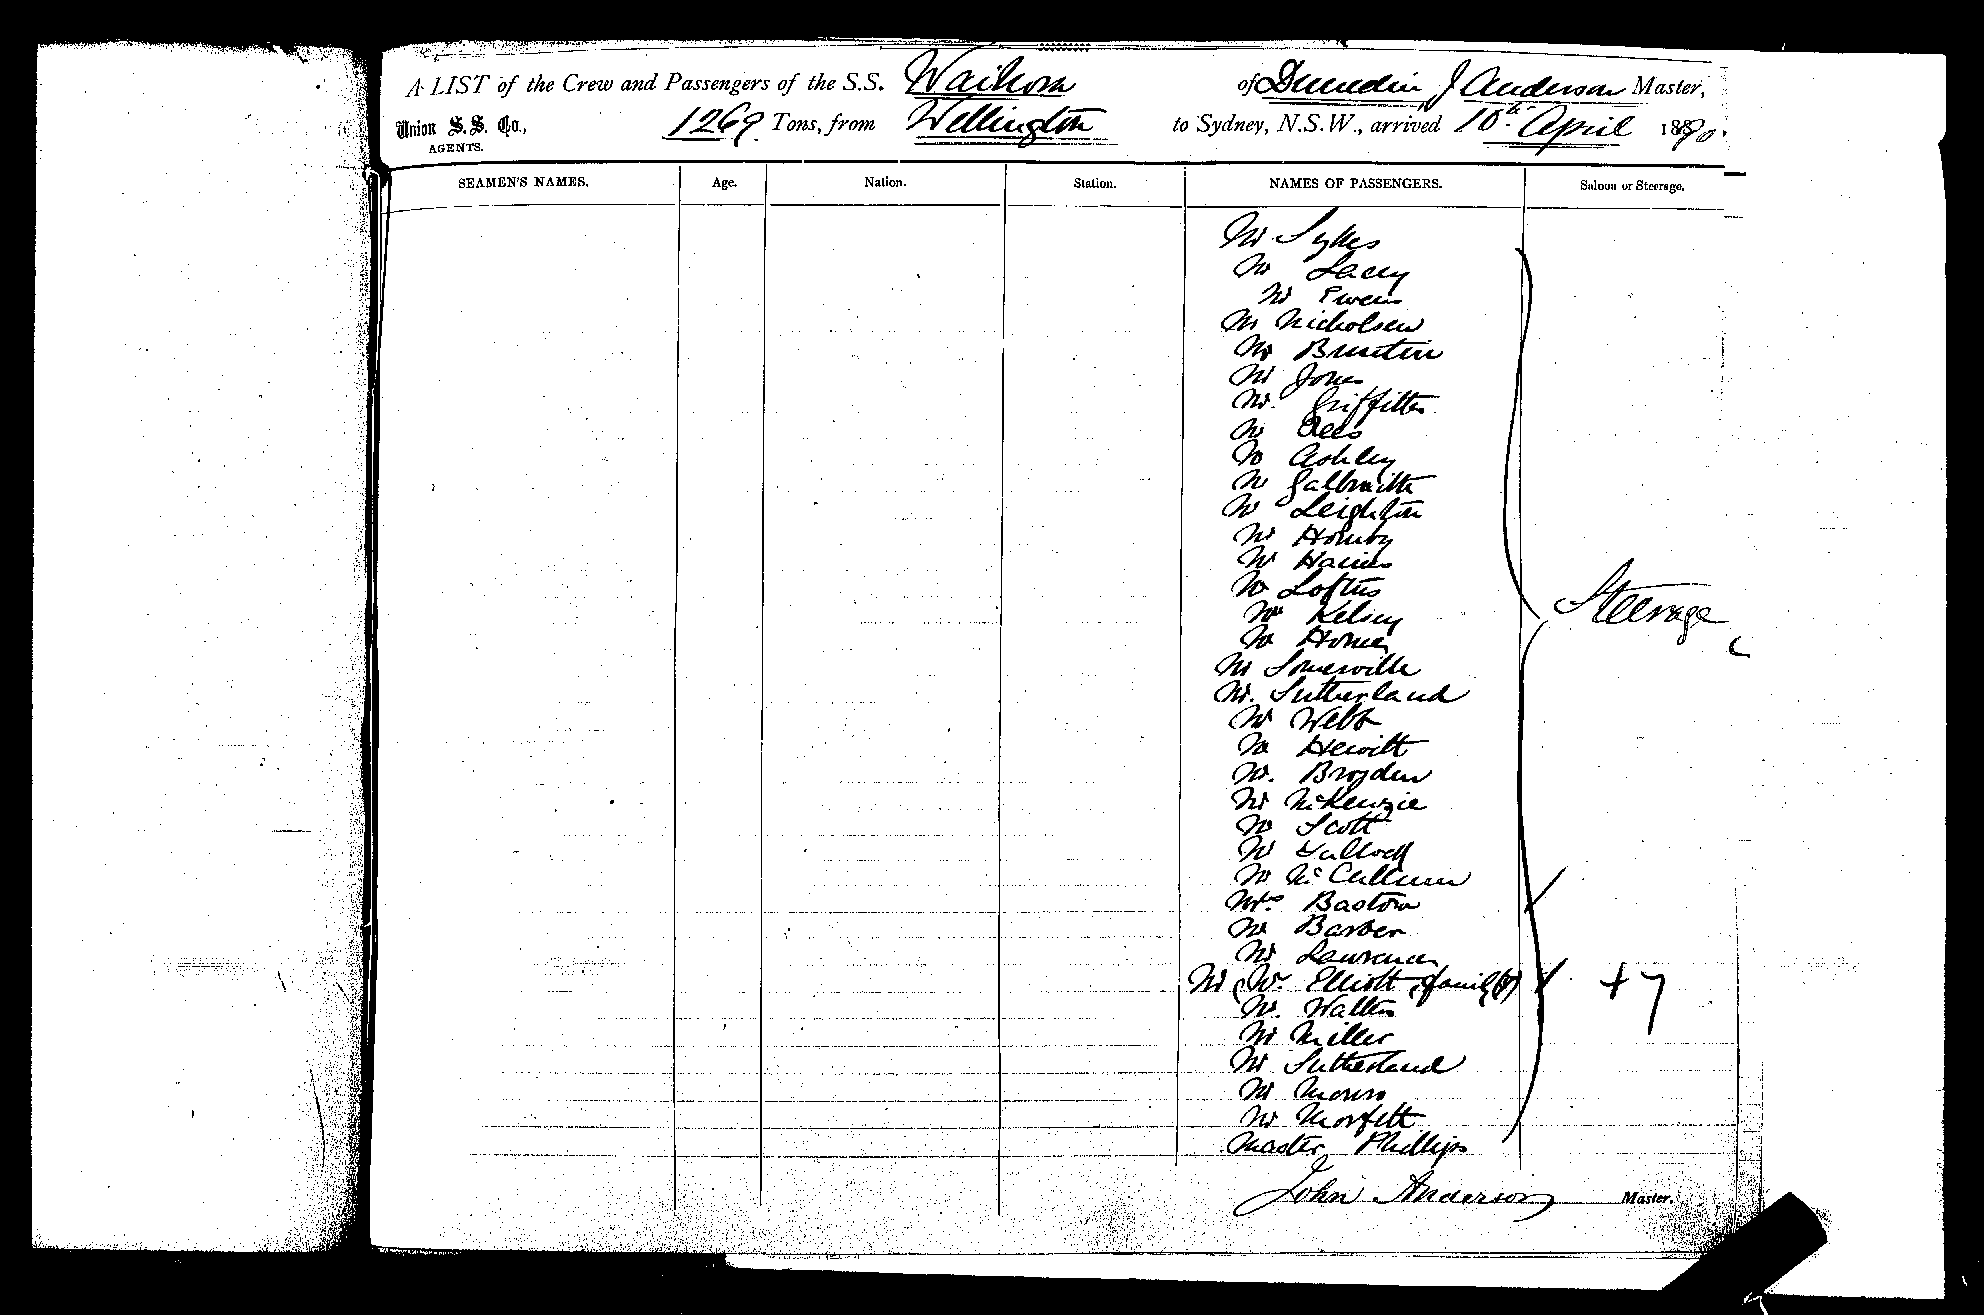 A LIST of the Crew and Passengers of the S.S. Waihora of Dunedin J Anderson Master,
Union S.S. Co., 1269 Tons, from Wellington to Sydney, N.S.W., arrived 10th April 1890.
AGENTS.
SEAMEN'S NAMES. Age. Nation. Station. NAMES OF PASSENGERS. Saloon or Steerage.
Mr Sykes
Mr Lacey
Mr Ewens
Mr Nicholson
Mr Bruntin
Mr Jones
Mr. Griffiths
Mr Rees
Mr Ashley
Mr Galbraith
Mr Leighton
Mr Hornby
Mr Haines
Mr Loftus
Mr Kelsey
Mr Horne
Steerage
Mr Somerville
Mr. Sutherland
Mr Webb
Mr Hewitt
Mr. Brogden
Mr McKenzie
Mr Scott
Mr
Mr McCallum
Mrs Bastow
Mr Barber
Mr Lawrence
Mr & Mrs Elliott & family (7) + 7
Mr. Walters
Mr Miller
Mr Sutherland
Mr Monro
Mr Morfett
Master Phillips
John Anderson Master.